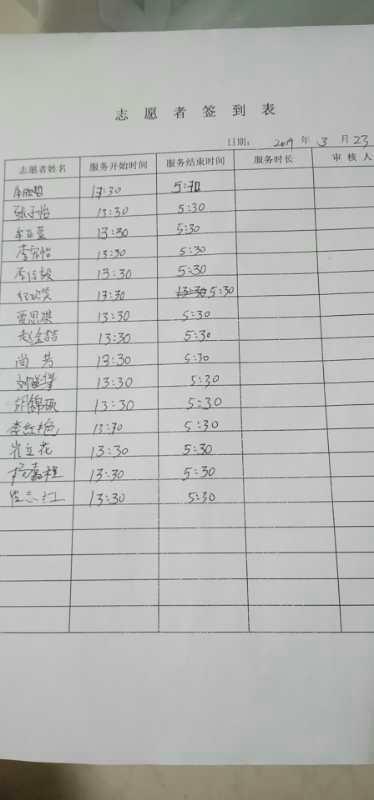 志愿者签到表
日期: 2019 年 3 月 23
志愿者姓名 服务开始时间 服务结束时间 服务时长 审核人
13:30
张子怡 13:30 5:30
13:30 5:30
李家怡 13:30 5:30
13:30 5:30
13:30 13:30 5:30
贾思琪 13:30 5:30
赵金喆 13:30 5:30
尚芳 13:30 5:30
13:30 5:30
邹锦硕 13:30 5:30
李红艳 13:30 5:30
崔立花 13:30 5:30
13:30 5:30
崔志红 13:30 5:30